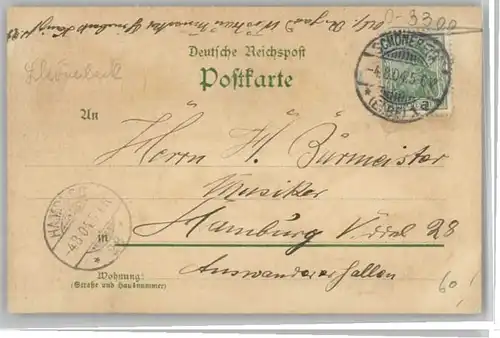 D-3300
Deutsche Reichspost
Postkarte
Schönebeck
SCHÖNEBECK
-4.8.04.5-6
(ELBE) a
An
Herrn H. Bürmeister
Musiker
Hamburg Veddel 28
HAMBURG
-4.8.04.
in
Auswandererhallen
Wohnung:
(Straße und Hausnummer)
60